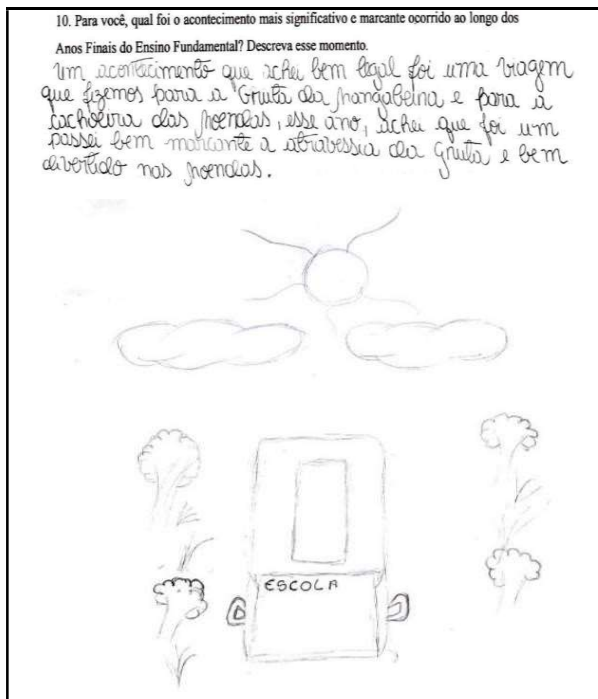 10. Para você, qual foi o acontecimento mais significativo e marcante ocorrido ao longo dos
Anos Finais do Ensino Fundamental? Descreva esse momento.
Um acontecimento que achei bem legal foi uma viagem
que fizemos para a Gruta da Mangabeira e para a
cachoeira das Moendas, esse ano, achei que foi um
passei bem marcante a atravessia da Gruta e bem
divertido nas Moendas.
ESCOLA